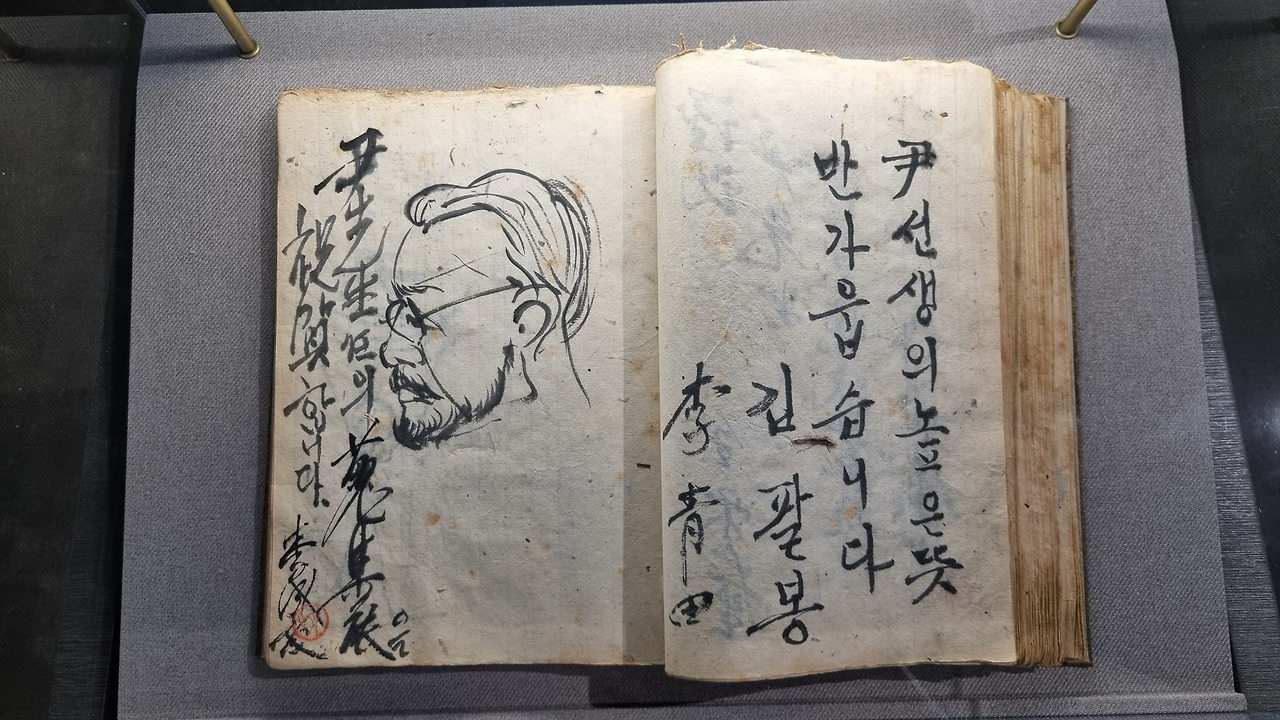 尹선생의 높은 뜻
반가웁습니다
김팔봉
李青田
尹先生님의 蒐集展을
祝賀합니다.